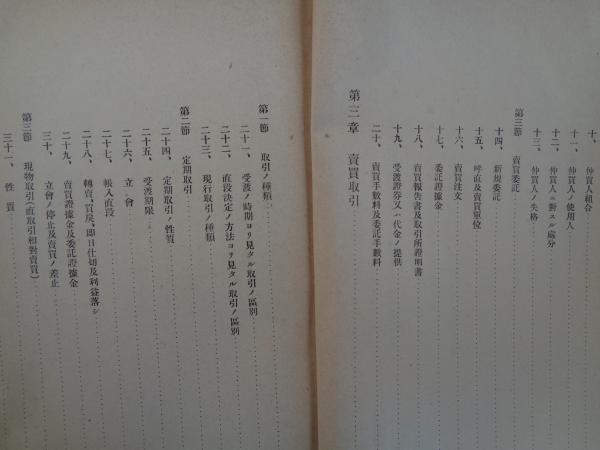 十、 仲買人組合
十一、 仲買人ノ使用人
十二、 仲買人ニ對スル處分
十三、 仲買人ノ失格
第三節 賣買委託
十四、 新規委託
十五、 呼直及賣買單位
十六、 賣買注文
十七、 委託證據金
十八、 賣買報告書及取引所證明書
十九、 受渡證券又ハ代金ノ提供
二十、 賣買手數料及委託手數料
第三章 賣買取引
第一節 取引ノ種類
二十一、 受渡ノ時期ヨリ見タル取引ノ區別
二十二、 直段決定ノ方法ヨリ見タル取引ノ區別
二十三、 現行取引ノ種類
第二節 定期取引
二十四、 定期取引ノ性質
二十五、 受渡期限
二十六、 立 會
二十七、 帳入直段
二十八、 轉賣、買戻、即日仕切及利益落シ
二十九、 賣買證據金及委託證據金
三十、 立會ノ停止及賣買ノ差止
第三節 現物取引(直取引相對賣買)
三十一、 性 質